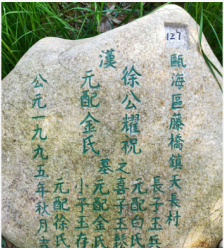 127
甌海區藤橋鎮天長村
漢
徐公耀祝
元配金氏
墓
長子玉兵
元配白氏
次喜子玉
元配金氏
小子玉存
元配徐氏
公元一九九五年秋月吉